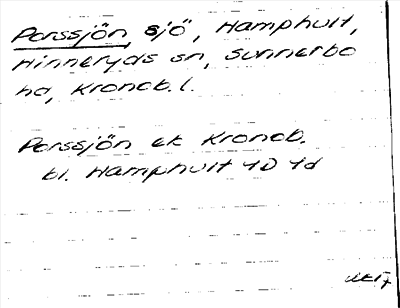 Porssjön, sjö, Hamphult,
Hinneryds sn, Sunnerbo
hd, Kronob. l.
Porssjön ek Kronob.
bl. Hamphult 4D 4d